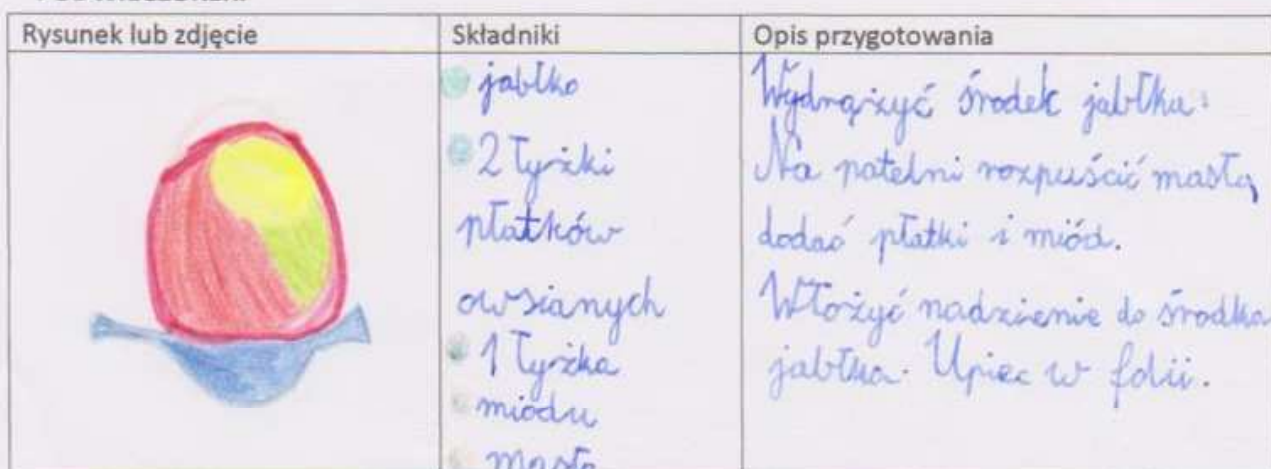 Rysunek lub zdjęcie
Składniki
Opis przygotowania
jabłko
2 łyżki
płatków
owsianych
1 łyżka
miodu
masło
Wydrążyć środek jabłka.
Na patelni rozpuścić masło,
dodać płatki i miód.
Włożyć nadzienie do środka
jabłka. Upiec w folii.